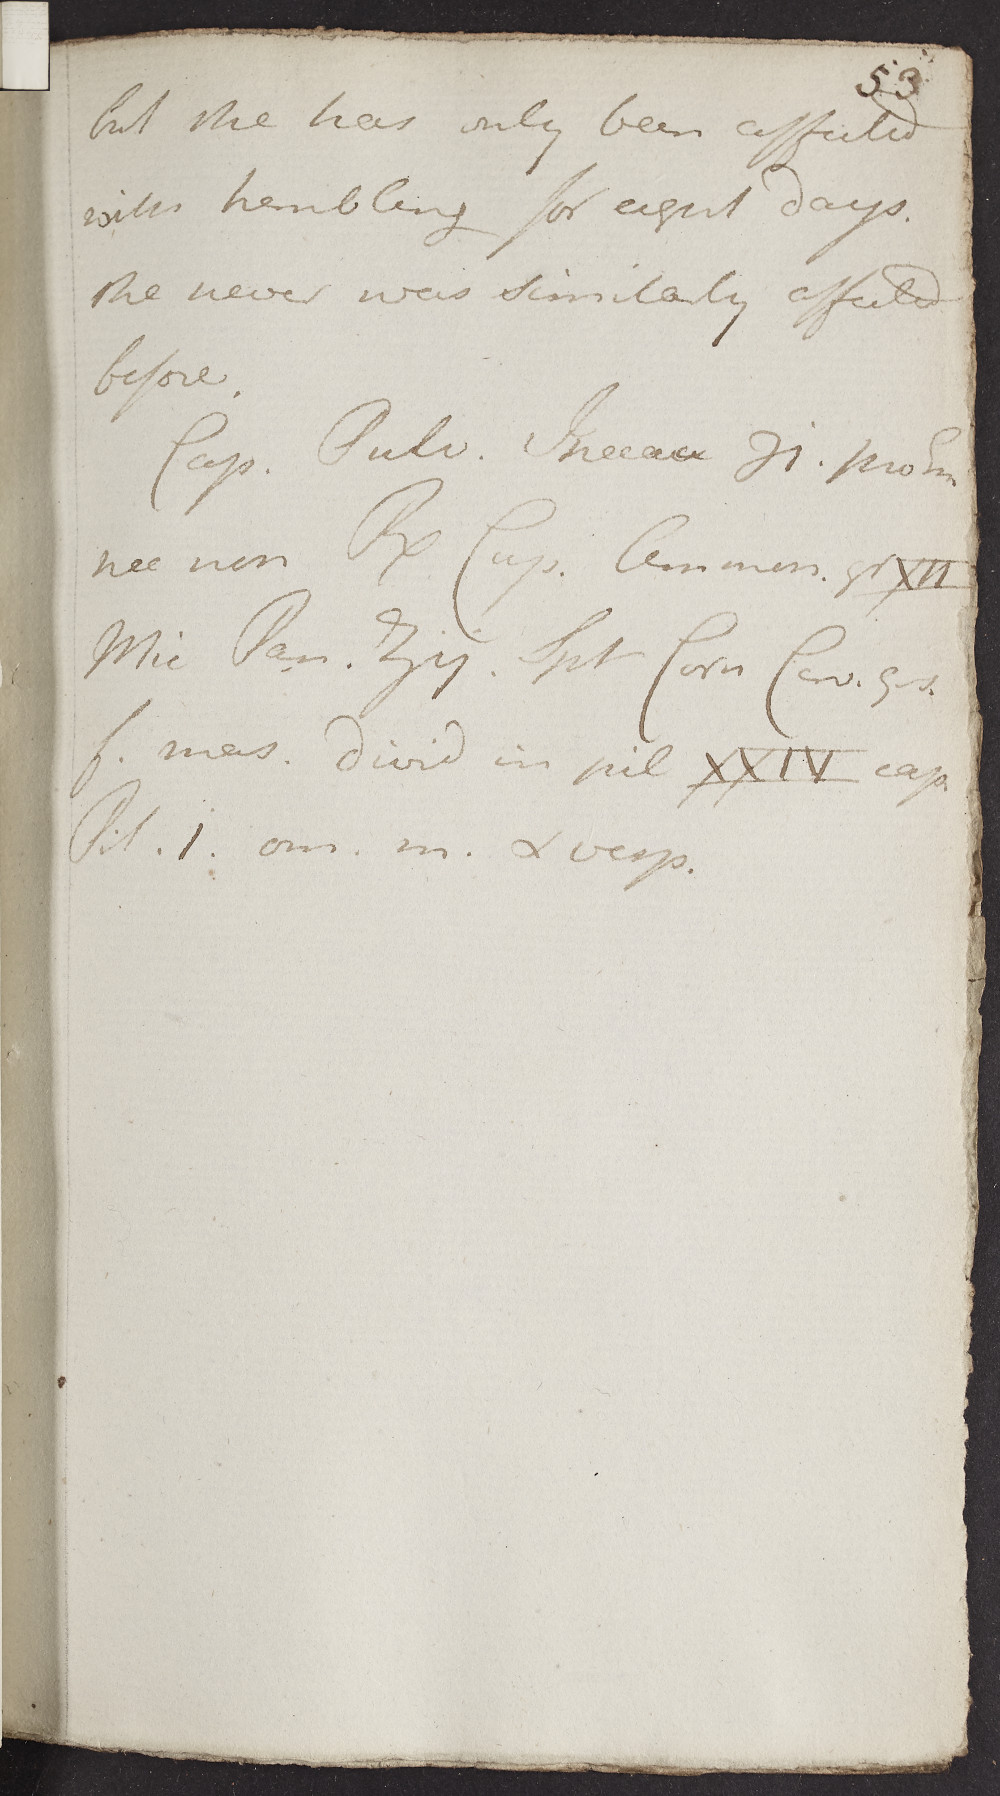 53
but she has only been affected
with trembling for eight days.
she never was similarly affected
before.
Cap. Pulv. Ipecac ℈i. pro Em
nec non ℞ Cup. Ammon. gr XII
Mic Pan. ʒij. Spt Corn Cerv. q.s.
f. mas. divid in pil XXIV cap.
Pil. i. om. m. & vesp.